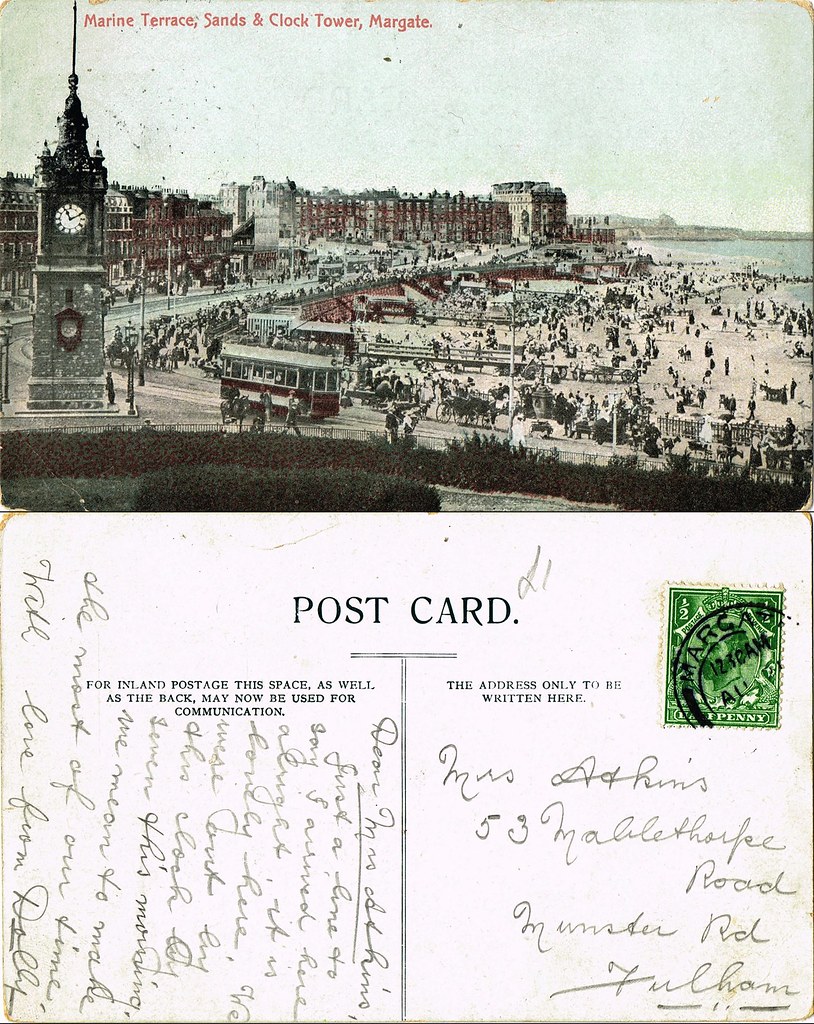 Marine Terrace, Sands & Clock Tower, Margate.
POST CARD.
FOR INLAND POSTAGE THIS SPACE, AS WELL
AS THE BACK, MAY NOW BE USED FOR
COMMUNICATION.
THE ADDRESS ONLY TO BE
WRITTEN HERE.
½
MARGATE
AU
HALFPENNY
Dear Mrs Atkins,
Just a line to
say I arrived here
alright it is
lovely here. We
were out by
this clock at
seven this morning,
we mean to make
the most of our time.
With love from Dolly
Mrs Atkins
53 Mablethorpe
Road
Munster Rd
Fulham